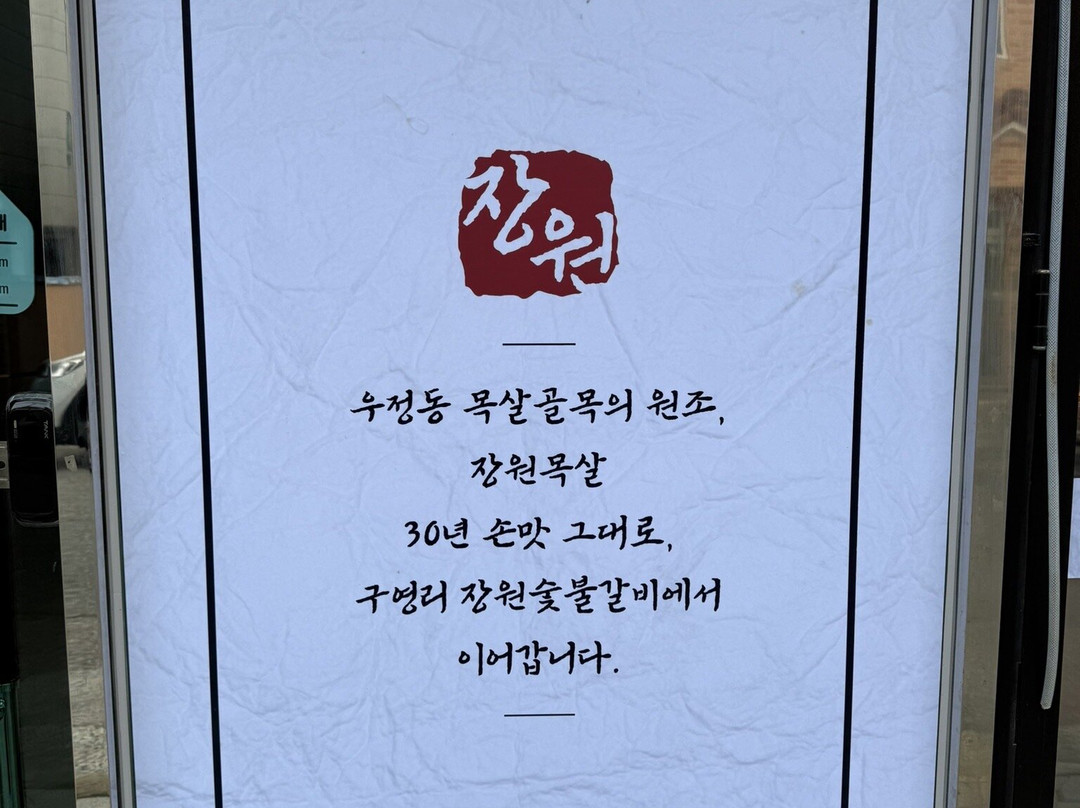 장원
우정동 목살골목의 원조,
장원목살
30년 손맛 그대로,
구영리 장원숯불갈비에서
이어갑니다.